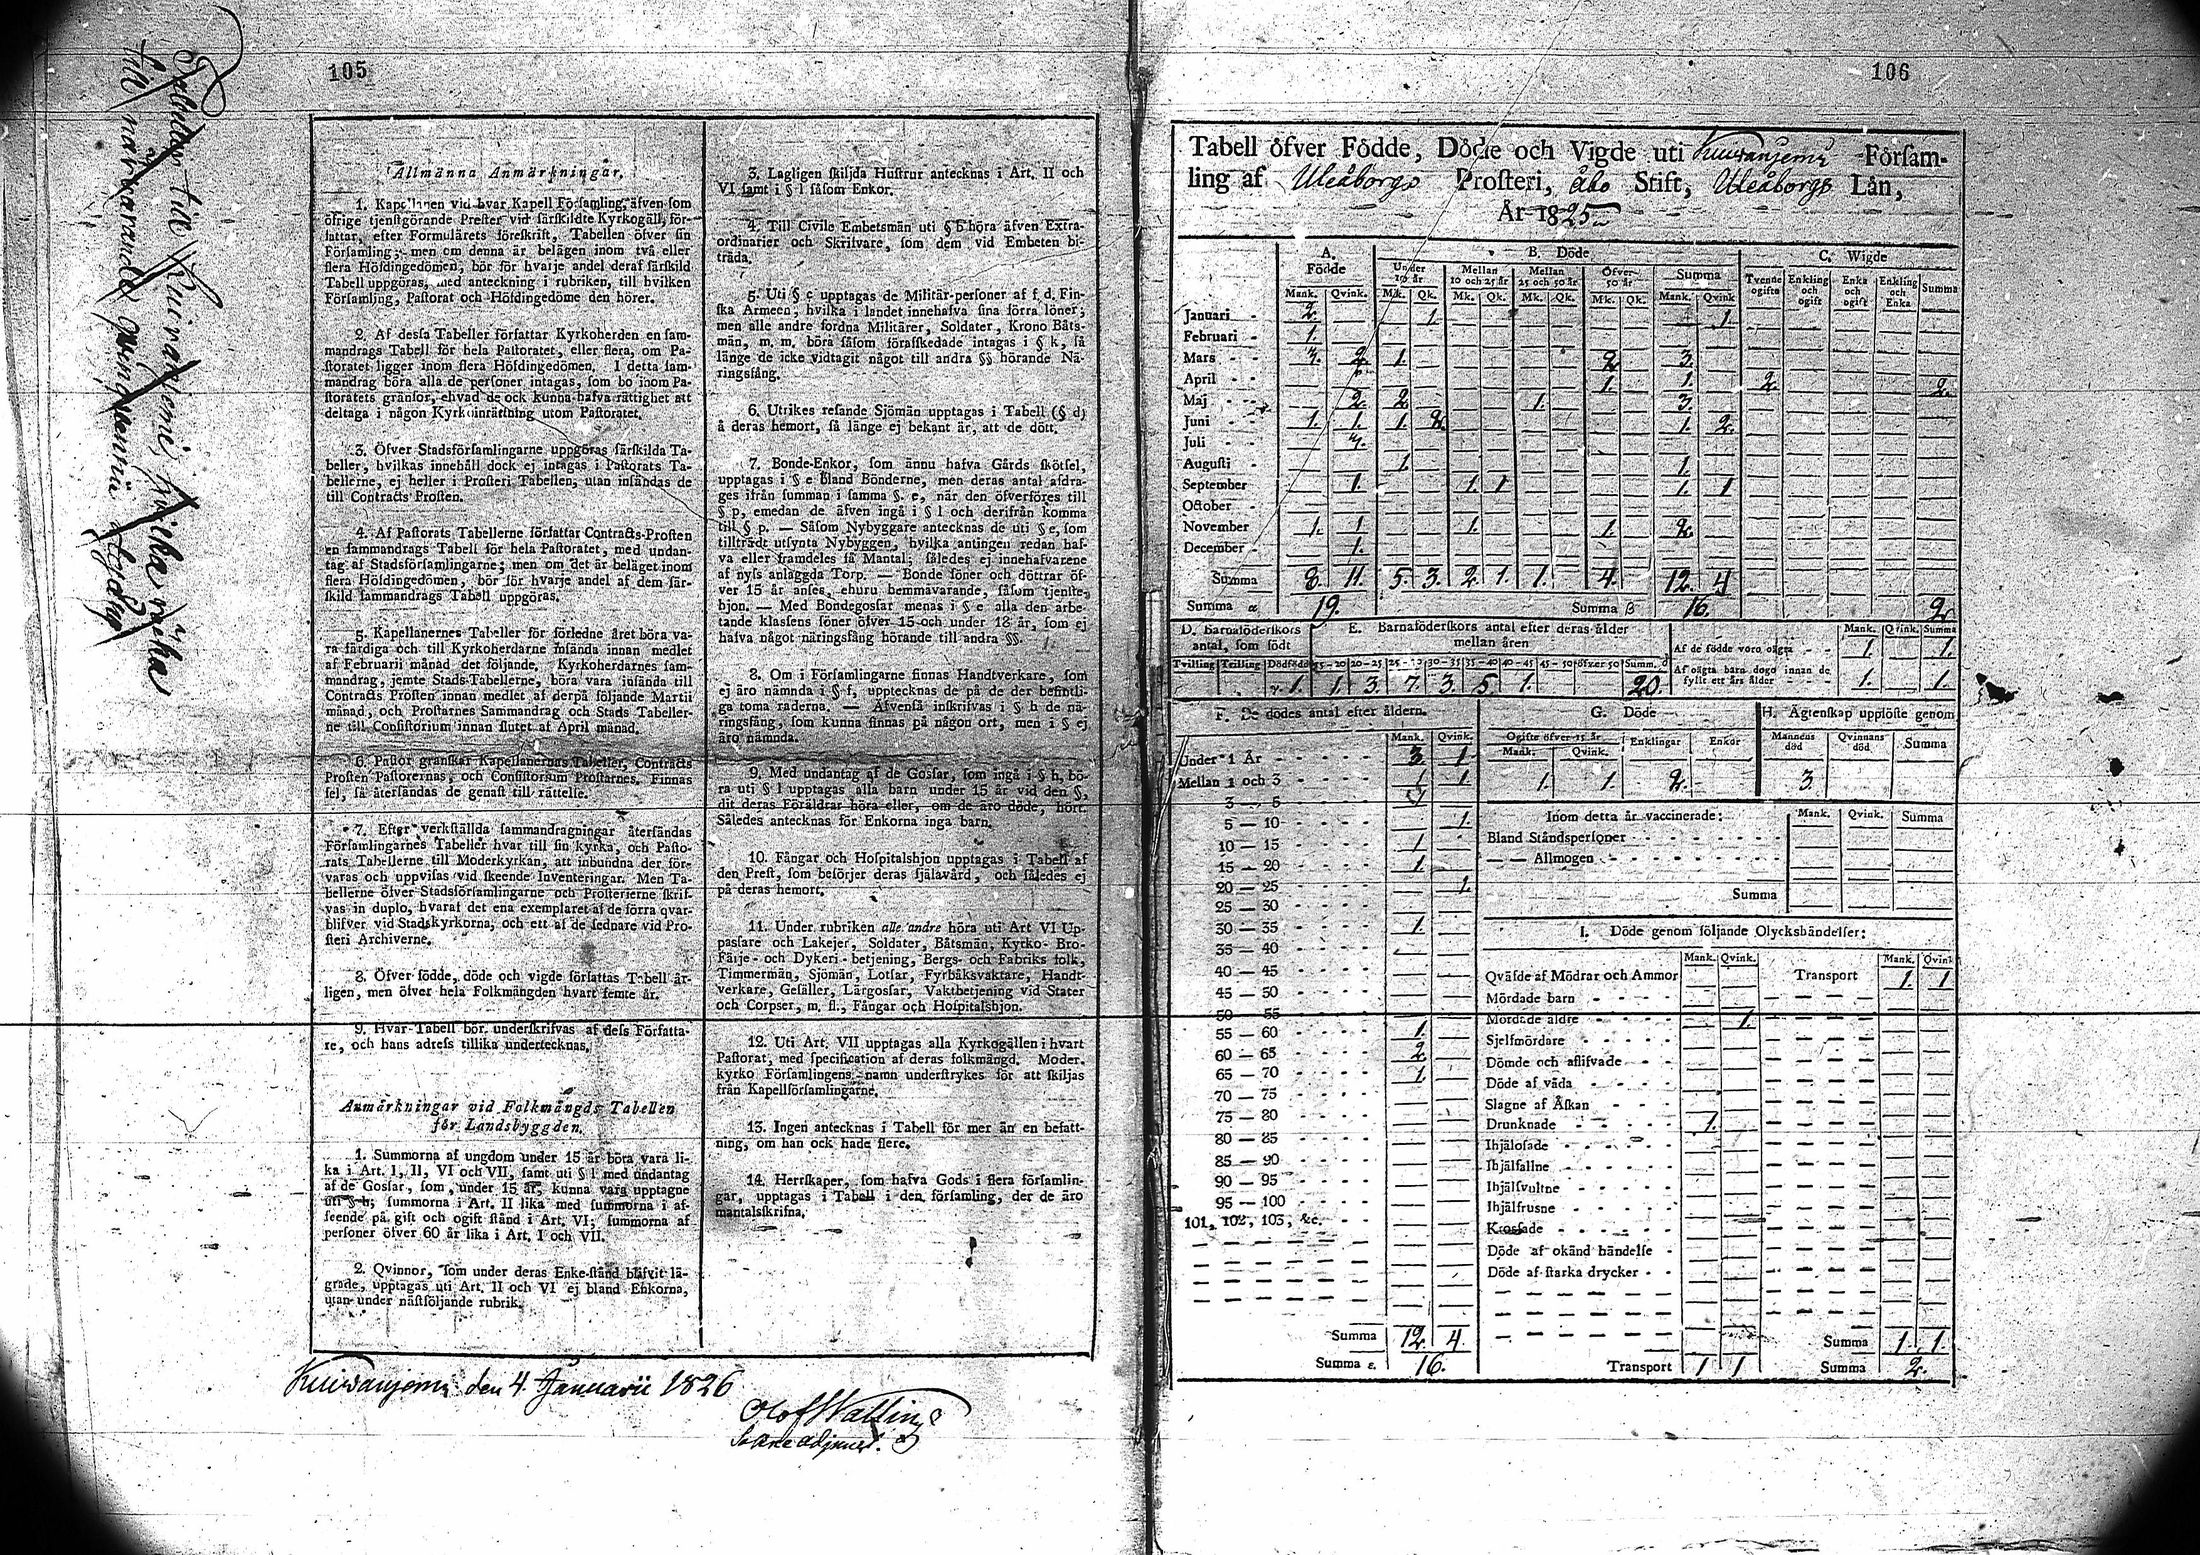 105
Allmänna Anmärkningar.
1. Kapellanen vid hvar Kapell Församling, äfven som
öfrige tjenstgörande Prester vid särskildte Kyrkogäll, för-
fattar, efter Formulärets föreskrift, Tabellen öfver sin
Församling; men om denna är belägen inom två eller
flera Höfdingedömen, bör för hvarje andel deraf särskild
Tabell uppgöras, med anteckning i rubriken, till hvilken
Församling, Pastorat och Höfdingedöme den hörer.
2. Af dessa Tabeller författar Kyrkoherden en sam-
mandrags Tabell för hela Pastoratet, eller flera, om Pa-
storatet ligger inom flera Höfdingedömen. I detta sam-
mandrag böra alla de personer intagas, som bo inom Pa-
storatets gränsor, ehvad de ock kunna hafva rättighet att
deltaga i någon Kyrkoinrättning utom Pastoratet.
3. Öfver Stadsförsamlingarne uppgöras särskilda Ta-
beller, hvilkas innehåll dock ej intagas i Pastorats Ta-
bellerne, ej heller i Prosteri Tabellen, utan insändas de
till Contracts Prosten.
4. Af Pastorats Tabellerne författar Contracts-Prosten
en sammandrags Tabell för hela Pastoratet, med undan-
tag af Stadsförsamlingarne; men om det är beläget inom
flera Höfdingedömen, bör för hvarje andel af dem sär-
skild sammandrags Tabell uppgöras.
5. Kapellanernes Tabeller för förledne året böra va-
ra färdiga och till Kyrkoherdarne insända innan medlet
af Februarii månad det följande. Kyrkoherdarnes sam-
mandrag, jemte Stads-Tabellerne, böra vara insända till
Contracts Prosten innan medlet af derpå följande Martii
månad, och Prostarnes Sammandrag och Stads Tabeller-
ne till Consistorium innan slutet af April månad.
6. Pastor granskar Kapellanernas Tabeller, Contracts
Prosten Pastorernas, och Consistorium Prostarnes. Finnas
fel, så återsändas de genast till rättelse.
7. Efter verkställda sammandragningar återsändas
Församlingarnes Tabeller hvar till sin kyrka, och Pasto-
rats Tabellerne till Moderkyrkan, att inbundna der för-
varas och uppvisas vid skeende Inventeringar. Men Ta-
bellerne öfver Stadsförsamlingarne och Prosterierne skrif-
vas in duplo, hvaraf det ena exemplaret af de förra qvar-
blifver vid Stadskyrkorna, och ett af de sednare vid Pro-
steri Archiverne.
8. Öfver födde, döde och vigde författas Tabell år-
ligen, men öfver hela Folkmängden hvart femte år.
9. Hvar Tabell bör underskrifvas af dess Författa-
re, och hans adress tillika undertecknas.
Anmärkningar vid Folkmängds Tabellen
för Landsbyggden.
1. Summorna af ungdom under 15 år böra vara li-
ka i Art. I, II, VI och VII, samt uti § l med undantag
af de Gossar, som, under 15 år, kunna vara upptagne
uti § h; summorna i Art. II lika med summorna i af-
seende på gift och ogift stånd i Art. VI; summorna af
personer öfver 60 år lika i Art. I och VII.
2. Qvinnor, som under deras Enke-stånd blifvit lä-
grade, upptagas uti Art. II och VI ej bland Enkorna,
utan under nästföljande rubrik.
3. Lagligen skiljda Hustrur antecknas i Art. II och
VI samt i § l såsom Enkor.
4. Till Civile Embetsmän uti § b höra äfven Extra-
ordinarier och Skrifvare, som dem vid Embeten bi-
träda.
5. Uti § c upptagas de Militär-personer af f. d. Fin-
ska Armeen, hvilka i landet innehafva sina förra löner;
men alle andre fordna Militärer, Soldater, Krono Båts-
män, m. m. böra såsom förafskedade intagas i § k, så
länge de icke vidtagit något till andra §§ hörande Nä-
ringsfång.
6. Utrikes resande Sjömän upptagas i Tabell (§ d)
å deras hemort, så länge ej bekant är, att de dött.
7. Bonde-Enkor, som ännu hafva Gårds skötsel,
upptagas i § e bland Bönderne, men deras antal afdra-
ges ifrån summan i samma §. e, när den öfverföres till
§ p, emedan de äfven ingå i § l och derifrån komma
till § p. — Såsom Nybyggare antecknas de uti § e, som
tillträdt utsynta Nybyggen, hvilka antingen redan haf-
va eller framdeles få Mantal; således ej innehafvarene
af nyss anlaggda Torp. — Bonde söner och döttrar öf-
ver 15 år anses, ehuru hemmavarande, såsom tjenste-
hjon. — Med Bondegossar menas i § e alla den arbe-
tande klassens söner öfver 15 och under 18 år, som ej
hafva något näringsfång hörande till andra §§.
8. Om i Församlingarne finnas Handtverkare, som
ej äro nämnda i § f, upptecknas de på de der befintli-
ga toma raderna. — Äfvenså inskrifvas i § h de nä-
ringsfång, som kunna finnas på någon ort, men i § ej
äro nämnda.
9. Med undantag af de Gossar, som ingå i § h, bö-
ra uti § l upptagas alla barn under 15 år vid den §,
dit deras Föräldrar höra eller, om de äro döde, hört.
Således antecknas för Enkorna inga barn.
10. Fångar och Hospitalshjon upptagas i Tabell af
den Prest, som besörjer deras själavård, och således ej
på deras hemort.
11. Under rubriken alle andre höra uti Art VI Up-
passare och Lakejer, Soldater, Båtsmän, Kyrko- Bro-
Färje- och Dykeri-betjening, Bergs- och Fabriks folk,
Timmermän, Sjömän, Lotsar, Fyrbåksvaktare, Handt-
verkare, Gesäller, Lärgossar, Vaktbetjening vid Stater
och Corpser, m. fl., Fångar och Hospitalshjon.
12. Uti Art. VII upptagas alla Kyrkogällen i hvart
Pastorat, med specification af deras folkmängd. Moder-
kyrko Församlingens namn understrykes för att skiljas
från Kapellförsamlingarne.
13. Ingen antecknas i Tabell för mer än en befatt-
ning, om han ock hade flere.
14. Herrskaper, som hafva Gods i flera församlin-
gar, upptagas i Tabell i den församling, der de äro
mantalsskrifna.
den 4 Januarii 1826
Olof Walling
106
Tabell öfver Födde, Döde och Vigde uti Kuivaniemi Församling
af Uleåborgs Prosteri, Åbo Stift, Uleåborgs Län,
År 1825
A. Födde B. Döde C. Wigde
Under 10 år Mellan 10 och 25 år Mellan 25 och 50 år Öfver 50 år Summa Tvende ogifte Enkling och ogift Enka och ogift Enkling och Enka Summa
Mank. Qvink. Mk. Qk. Mk. Qk. Mk. Qk. Mk. Qk. Mank. Qvink
Januari 2. 1. 1.
Februari 1.
Mars 2. 1. 2. 3.
April 1. 1. 2. 2.
Maj 2. 2. 1. 3.
Juni 1. 1. 1. 2. 1. 2.
Juli
Augusti 1. 1.
September 1. 1. 1 1. 1
October
November 1. 1. 1. 1. 2.
December 1.
Summa 8. 11. 5. 3. 2. 1. 1. 4. 12. 4
Summa α 19. Summa β 16. 2.
D. Barnaföderskors antal, som födt
Tvilling Trilling Dödfödd
1.
E. Barnaföderskors antal efter deras ålder mellan åren
15-20 20-25 25-30 30-35 35-40 40-45 45-50 öfver 50 Summ. d
1. 3. 7. 3. 5. 1. 20.
Mank. Qvink. Summa
Af de födde voro oägta 1. 1.
Af oägta barn dogo innan de fyllt ett års ålder 1. 1.
F. De dödes antal efter åldern.
Mank. Qvink.
Under 1 År 3. 1.
Mellan 1 och 3 1. 1.
3 — 5
5 — 10 1.
10 — 15 1.
15 — 20 1.
20 — 25 1.
25 — 30
30 — 35 1.
35 — 40
40 — 45
45 — 50
50 — 55
55 — 60 1.
60 — 65 2.
65 — 70 1.
70 — 75
75 — 80
80 — 85
85 — 90
90 — 95
95 — 100
101, 102, 103, &c.
Summa 12. 4.
Summa ε. 16.
G. Döde
Ogifte öfver 15 år Enklingar Enkor
Mank. Qvink.
1. 1. 2.
H. Ägtenskap upplöste genom
Mannens död Qvinnans död Summa
3.
Inom detta år vaccinerade: Mank. Qvink. Summa
Bland Ståndspersoner
— — Allmogen
Summa
I. Döde genom följande Olyckshändelser:
Mank. Qvink. Mank. Qvink
Qväfde af Mödrar och Ammor Transport 1. 1
Mördade barn
Mördade äldre 1.
Sjelfmördare
Dömde och aflifvade
Döde af våda
Slagne af Åskan
Drunknade 1.
Ihjälofade
Ihjälfallne
Ihjälsvultne
Ihjälfrusne
Krossade
Döde af okänd händelse
Döde af starka drycker
Summa 1. 1.
Transport 1 1 Summa 2.